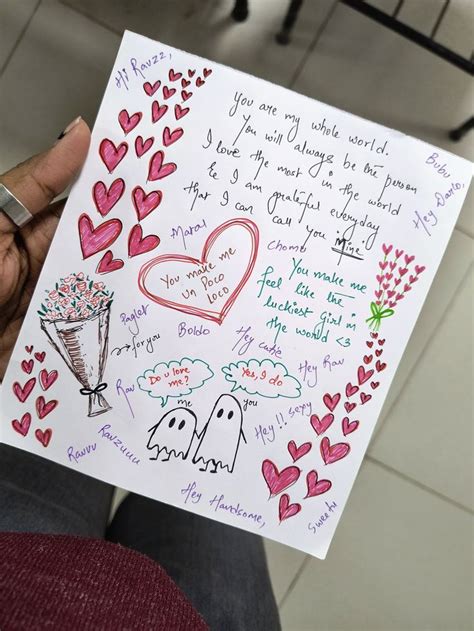 Hi Ravzz,
You are my whole world.
You will always be the person
I love the most in the world
& I am grateful everyday
that I can call you Mine
Bubu
Hey Darlo,
Chomu
You make me
un Poco
loco
You make me
feel like the
luckiest girl in
the world <3
Paglet
→ for you
Boldo
Hey cutie
Hey Rav
Rav
Do u love
me?
Yes, I do
me
you
Hey!! sexy
Ravvu
Ravzuuu
Hey Handsome,
Sweetu